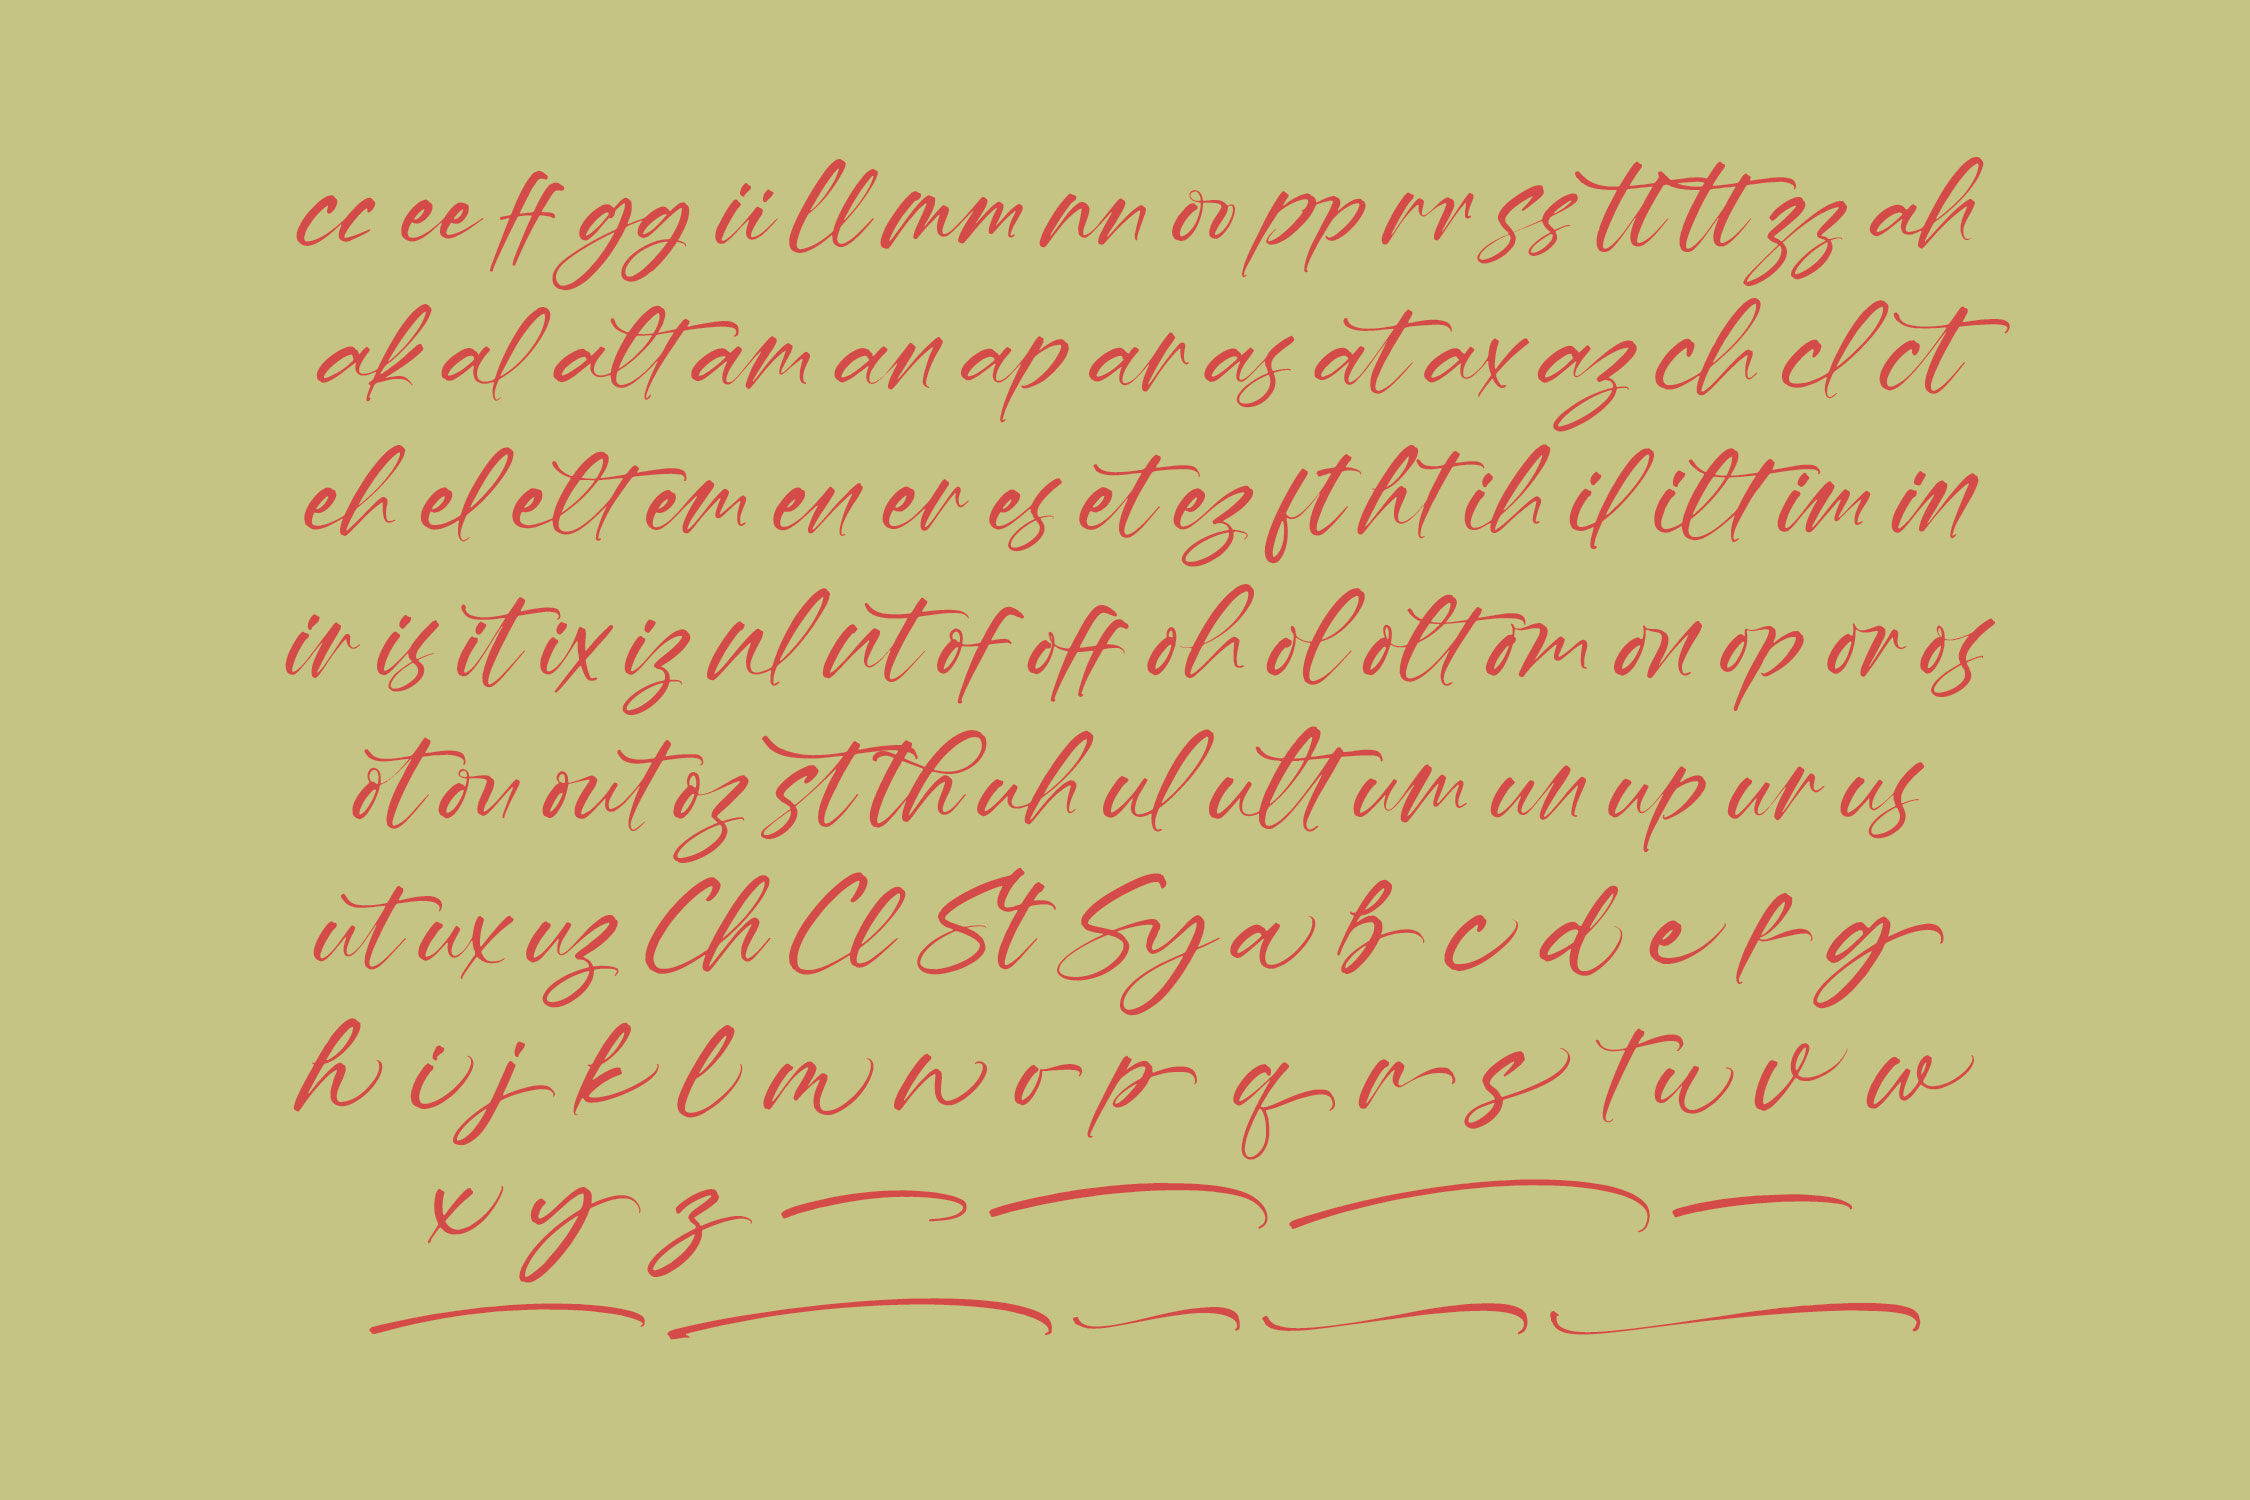 cc ee ff gg ii ll mm nn oo pp rr ss tt tt zz ah
ak al alt am an ap ar as at ax az ch cl ct
eh el elt em en er es et ez ft ht ih il ilt im in
ir is it ix iz ul ut of off oh ol olt om on op or os
ot ou out oz st th uh ul ult um un up ur us
ut ux uz Ch Cl St Sy a b c d e f g
h i j k l m n o p q r s t u v w
x y z